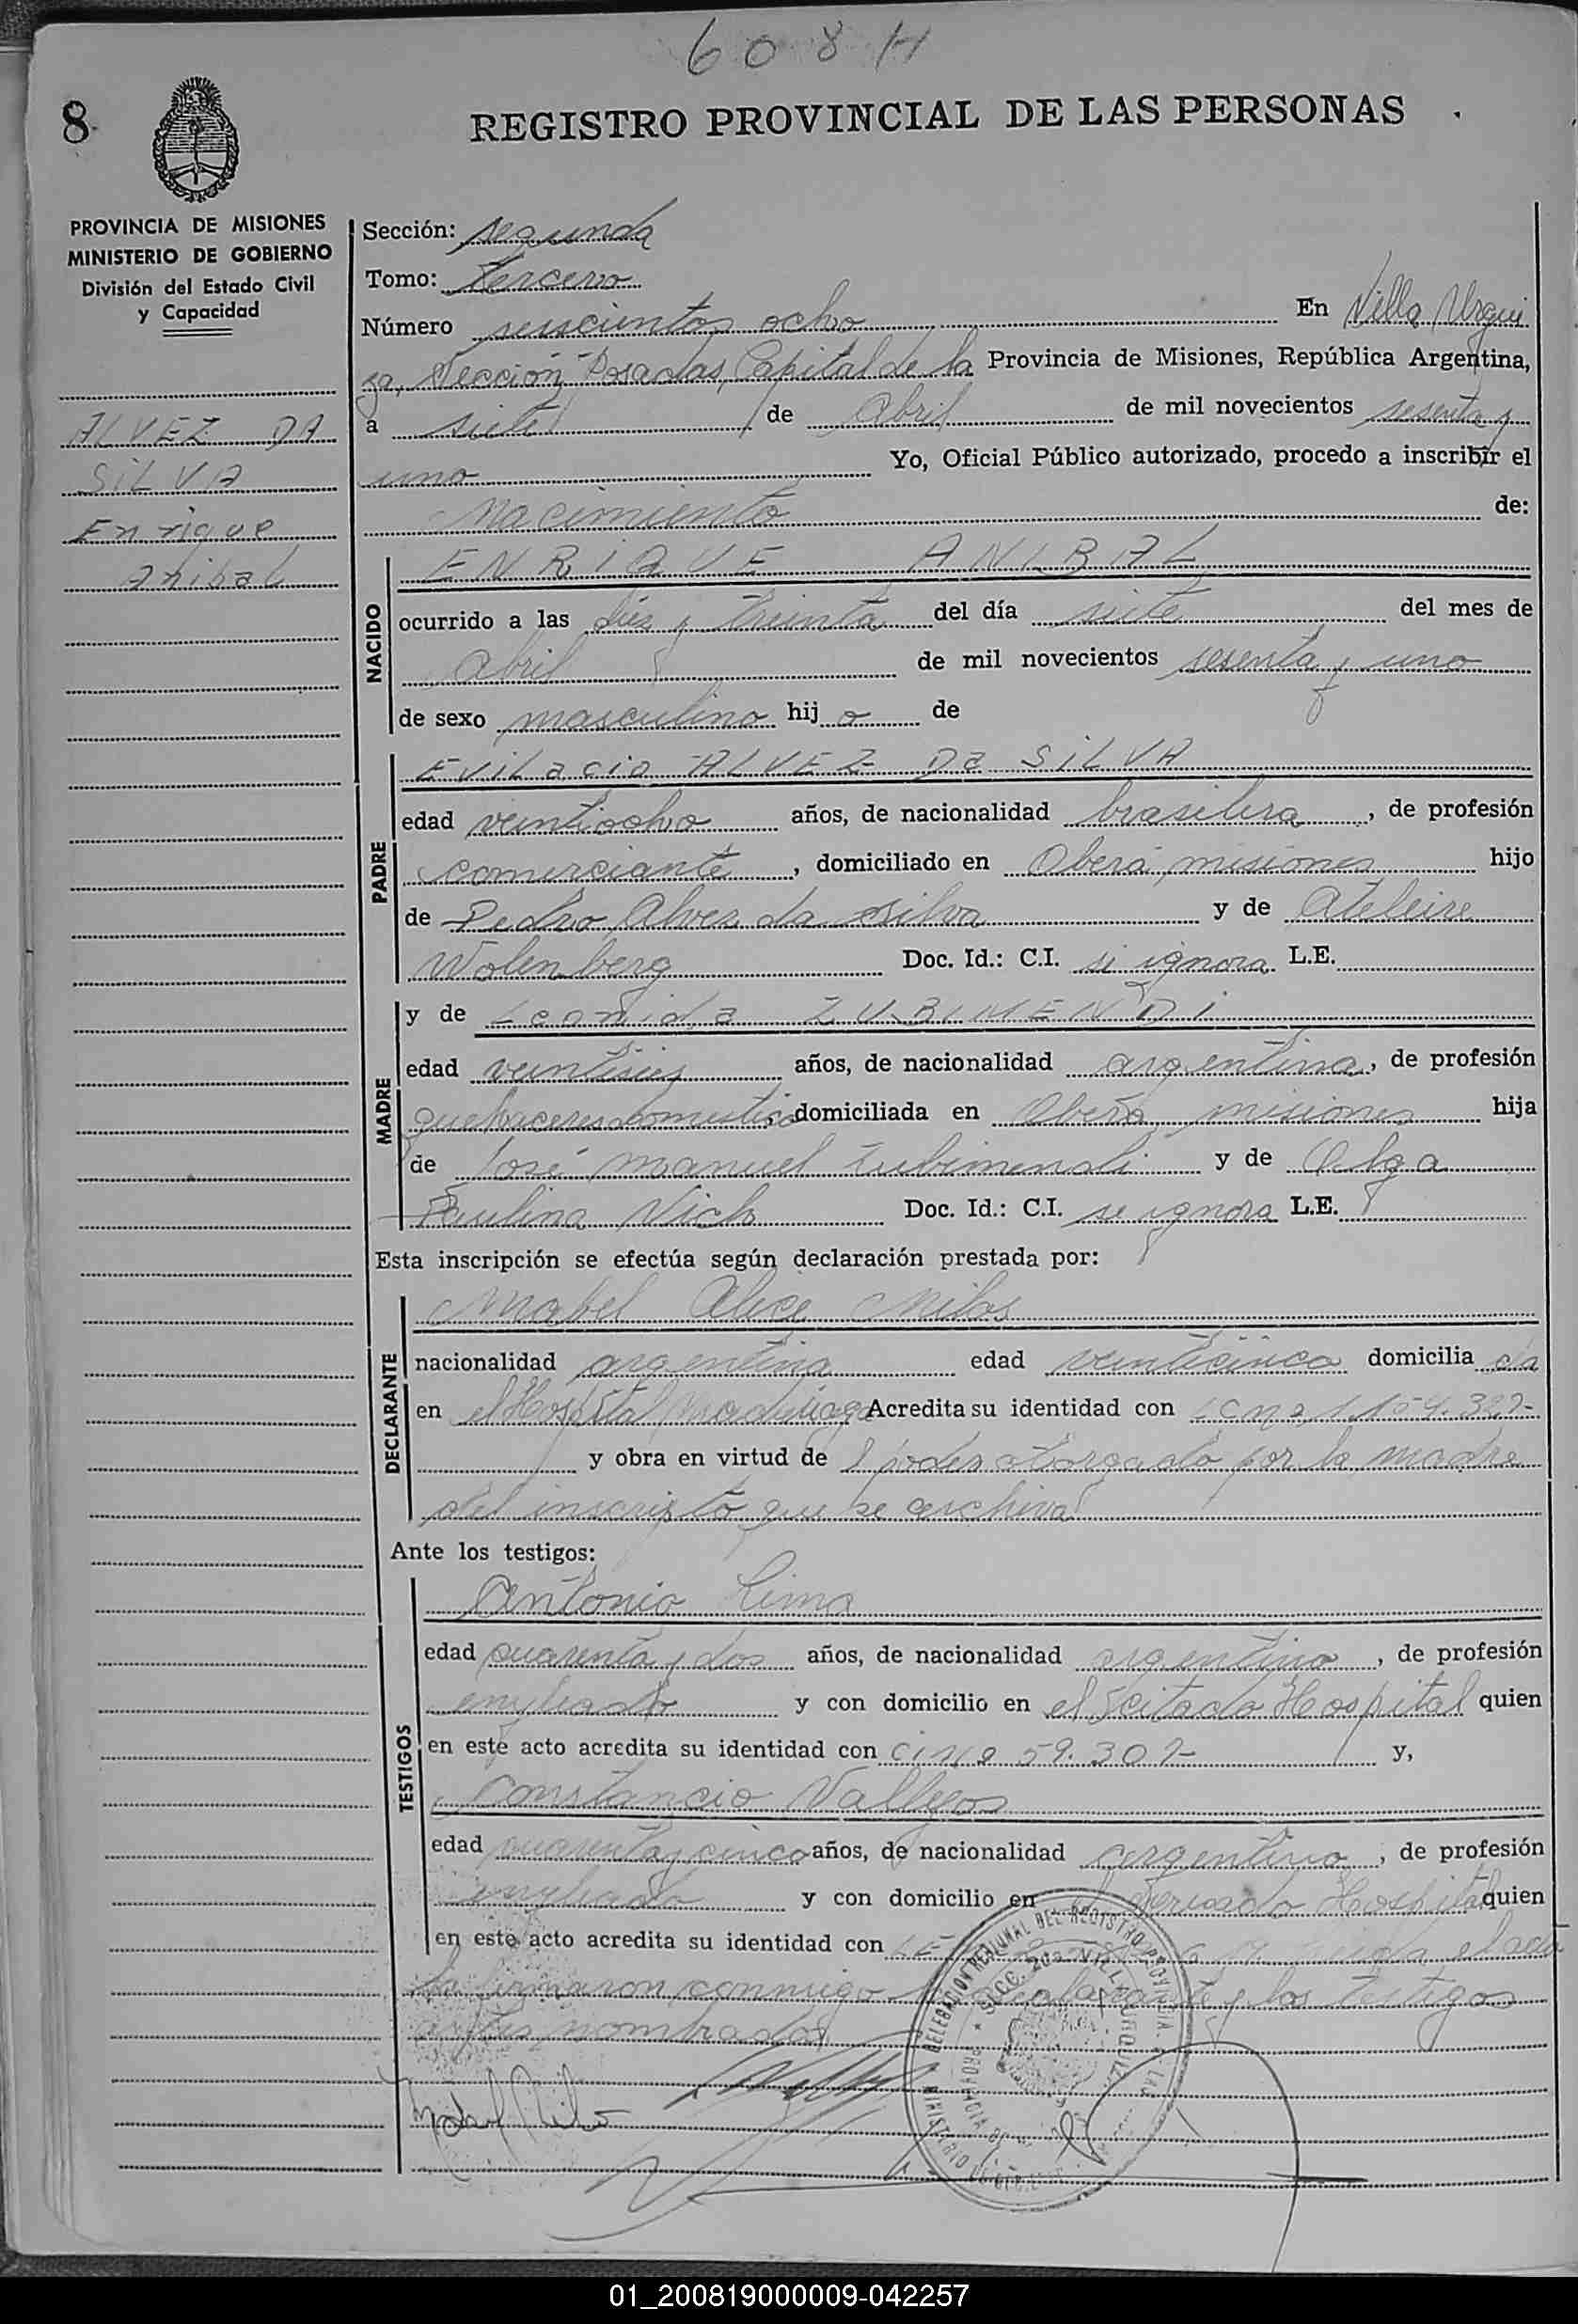 608 H
8
REGISTRO PROVINCIAL DE LAS PERSONAS
PROVINCIA DE MISIONES
MINISTERIO DE GOBIERNO
División del Estado Civil
y Capacidad
ALVEZ DA
SILVA
Enrique
Anibal
Sección: segunda
Tomo: tercero
Número seiscientos ocho En Villa Urqui
za, Sección Posadas, Capital de la Provincia de Misiones, República Argentina,
a siete de Abril de mil novecientos sesenta y
uno Yo, Oficial Público autorizado, procedo a inscribir el
nacimiento de:
NACIDO
ENRIQUE ANIBAL
ocurrido a las diez y treinta del día siete del mes de
Abril de mil novecientos sesenta y uno
de sexo masculino hij o de
PADRE
Evilacio ALVEZ Da SILVA
edad veintiocho años, de nacionalidad brasilera, de profesión
comerciante, domiciliado en Oberá, misiones hijo
de Pedro Alvez da Silva y de Ateleire
Wolenberg Doc. Id.: C.I. si ignora L.E.
MADRE
y de Leonida ZUBIMENDI
edad veintiseis años, de nacionalidad argentina, de profesión
quehaceres domestico domiciliada en Oberá, misiones hija
de José manuel Zubimendi y de Olga
Paulina Vich Doc. Id.: C.I. se ignora L.E.
Esta inscripción se efectúa según declaración prestada por:
DECLARANTE
Mabel Alice Milos
nacionalidad argentina edad veinticinco domicilia da
en el Hospital Madariaga Acredita su identidad con
y obra en virtud de l poder otorgado por la madre
del inscripto que se archiva
Ante los testigos:
TESTIGOS
Antonio Lima
edad cuarenta y dos años, de nacionalidad argentino, de profesión
empleado y con domicilio en el citado Hospital quien
en este acto acredita su identidad con CI No 59.307- y,
Constancio Vallejos
edad cuarenta y cinco años, de nacionalidad argentino, de profesión
empleado y con domicilio en el Hospital quien
en este acto acredita su identidad con LE el acta
la firmaron conmigo la declarante y los testigos
antes nombrados
DELEGACION REGIONAL DEL REGISTRO PROVINCIAL
SECC. 2da VILLA URQUIZA
01_200819000009-042257